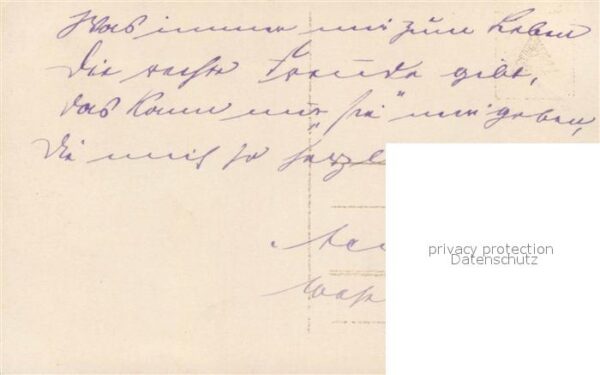 Was immer mir zum Leben
die rechte Freude gibt,
das kann nur "sie" mir geben,
die mich so herzl
privacy protection
Datenschutz